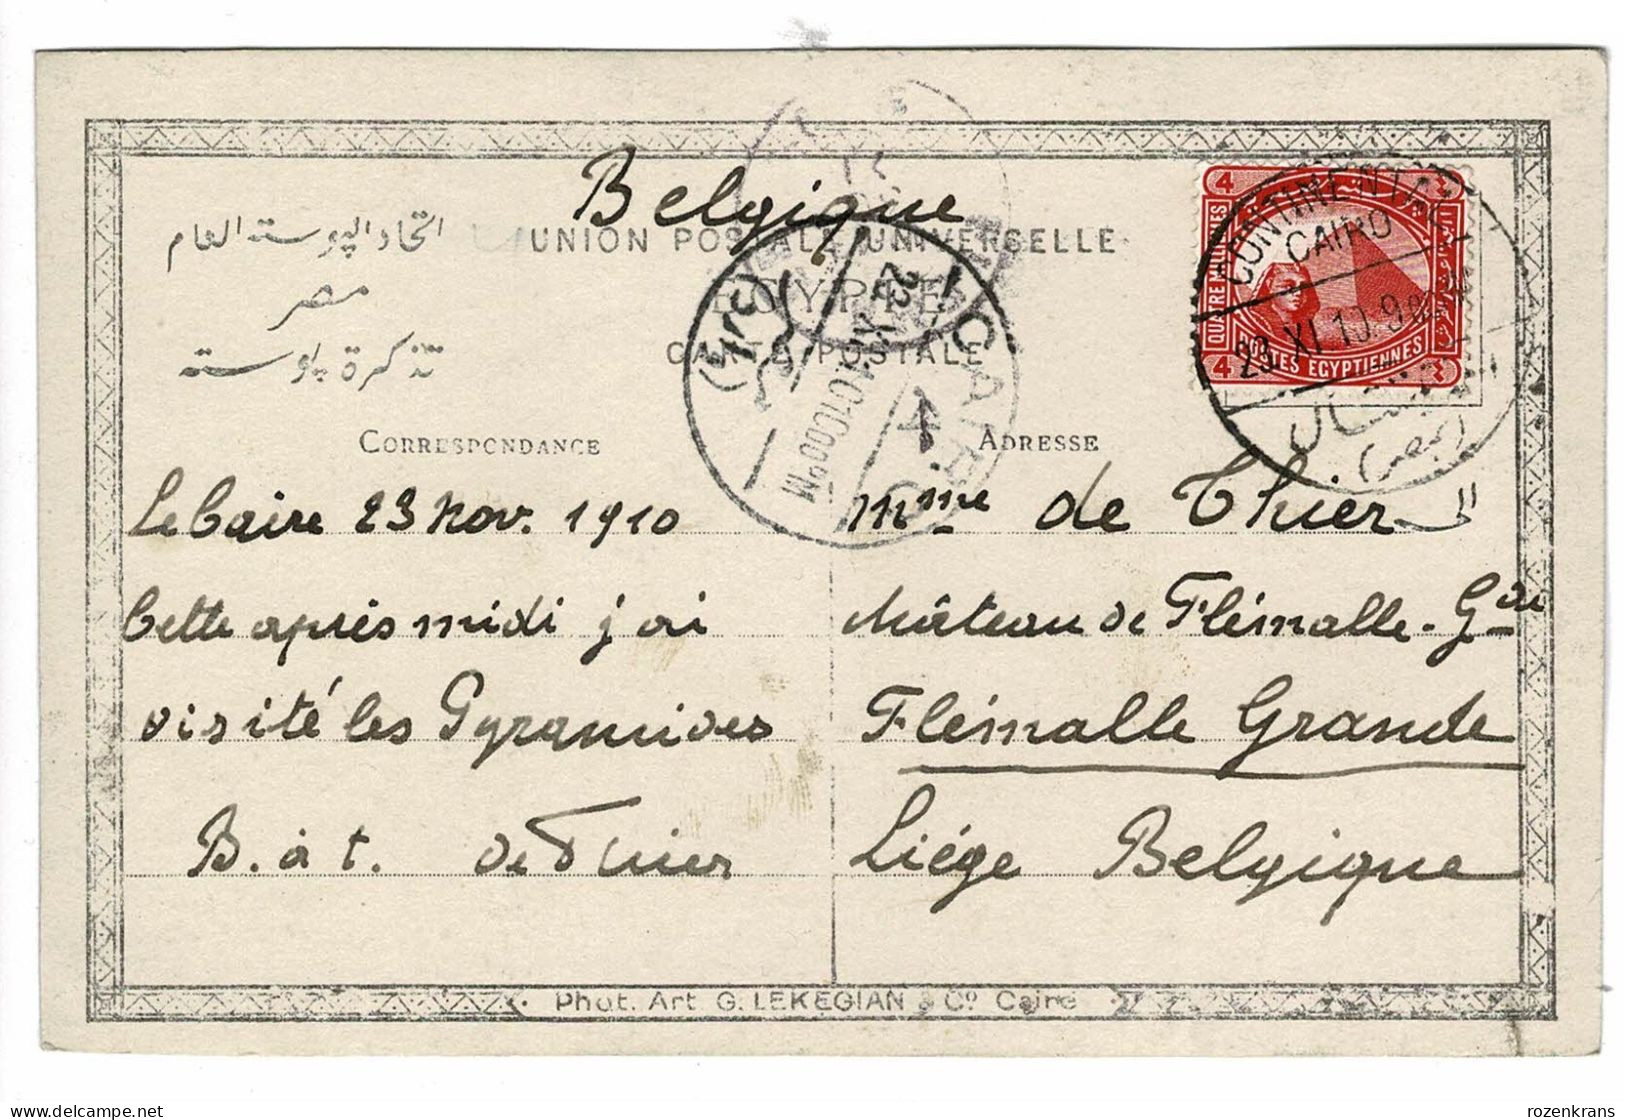 Belgique
اتحاد البوسته العام
UNION POSTALE UNIVERSELLE
مصر
EGYPTE
تذكرة بوسته
CARTE POSTALE
4 4
QUATRE MILLIEMES
POSTES EGYPTIENNES
4
CONTINENTAL
CAIRO
23.XI.10.9
CAIRO
23 XI 10 10 00 PM
CORRESPONDANCE
ADRESSE
Le Caire 23 nov. 1910
Cette après midi j ai
visité les Pyramides
B. à t. de Thier
Mme de Thier
château de Flémalle-Gde
Flémalle Grande
Liége Belgique
Phot. Art G. LEKEGIAN & Co Caire
rozenkrans